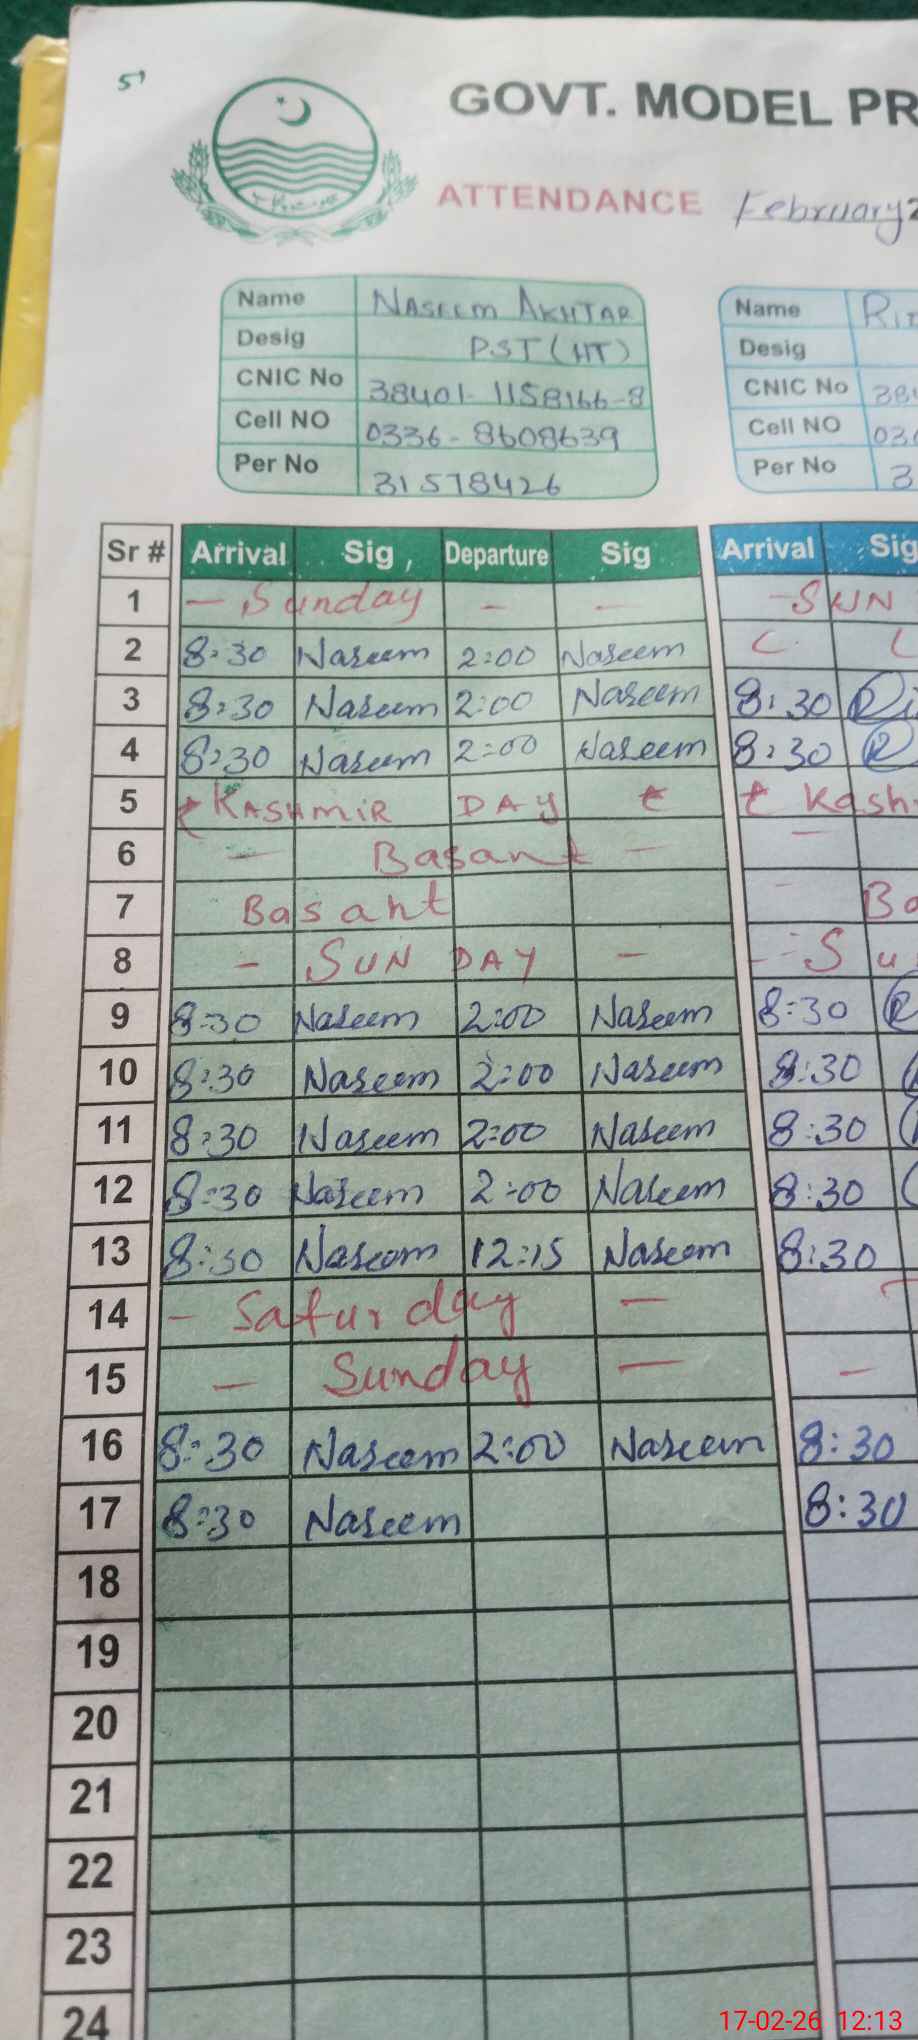 51
GOVT. MODEL PR
ATTENDANCE February 2
Name NASEEM AKHTAR
Desig P.ST (HT)
CNIC No 38401-1158166-8
Cell NO 0336-8608639
Per No 31578426
Name
Desig
CNIC No 384
Cell NO 03
Per No 3
Sr # Arrival Sig, Departure Sig Arrival Sig
1 - Sunday - - - SUN
2 8:30 Naseem 2:00 Naseem L L
3 8:30 Naseem 2:00 Naseem 8:30
4 8:30 Naseem 2:00 Naseem 8:30
5 KASHMIR DAY Kash
6 - Basant - -
7 Basant - Ba
8 - SUN DAY - - Su
9 8:30 Naseem 2:00 Naseem 8:30
10 8:30 Naseem 2:00 Naseem 8:30
11 8:30 Naseem 2:00 Naseem 8:30
12 8:30 Naseem 2:00 Naseem 8:30
13 8:30 Naseem 12:15 Naseem 8:30
14 - Saturday -
15 - Sunday - -
16 8:30 Naseem 2:00 Naseem 8:30
17 8:30 Naseem 8:30
18
19
20
21
22
23
24
17-02-26 12:13